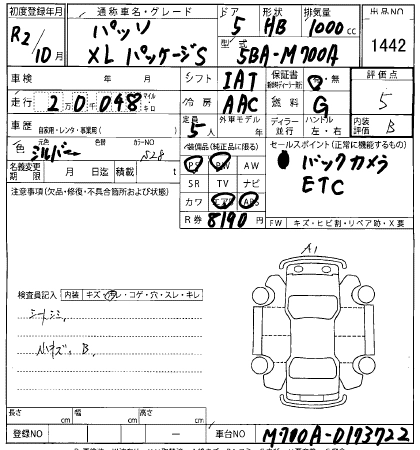 初度登録年月 通称車名・グレード ドア 形状 排気量 出品NO
R2/10月 パッソ 5 HB 1000cc 1442
XL パッケージS 5BA-M700A
車検 年 月 シフト IAT 保証書 有・無 評価点
走行 20048 マイル キロ 冷房 AAC 燃料 G 5
車歴 自家用・レンタ・事業用( ) 定員 5人 外車モデル 年 ディーラー 並行 ハンドル 左・右 内装評価 B
色 元色 シルバー 色替 カラーNO S28 装備品(純正品に限る) セールスポイント(正常に機能するもの)
名義変更期限 月 日迄 積載 t PS PW AW バックカメラ
注意事項(欠品・修復・不具合箇所および状態) SR TV ナビ ETC
カワ エアB ABS
R券 8190円 FW キズ・ヒビ割・リペア跡・X要
A1
検査員記入 内装 キズ・汚レ・コゲ・穴・スレ・キレ
シートシミ、
小キズ、B、
長さ cm 幅 cm 高さ cm
登録NO ー 車台NO M700A-0173722